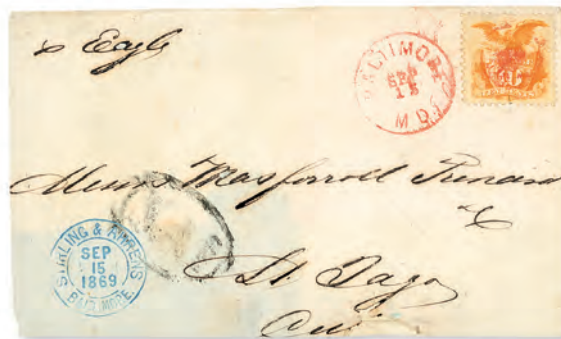 p Eagle
BALTIMORE
SEP
15
MD.
Messrs Masforroll
&
STIRLING & AHRENS
SEP
15
1869
BALTIMORE.
St Jago